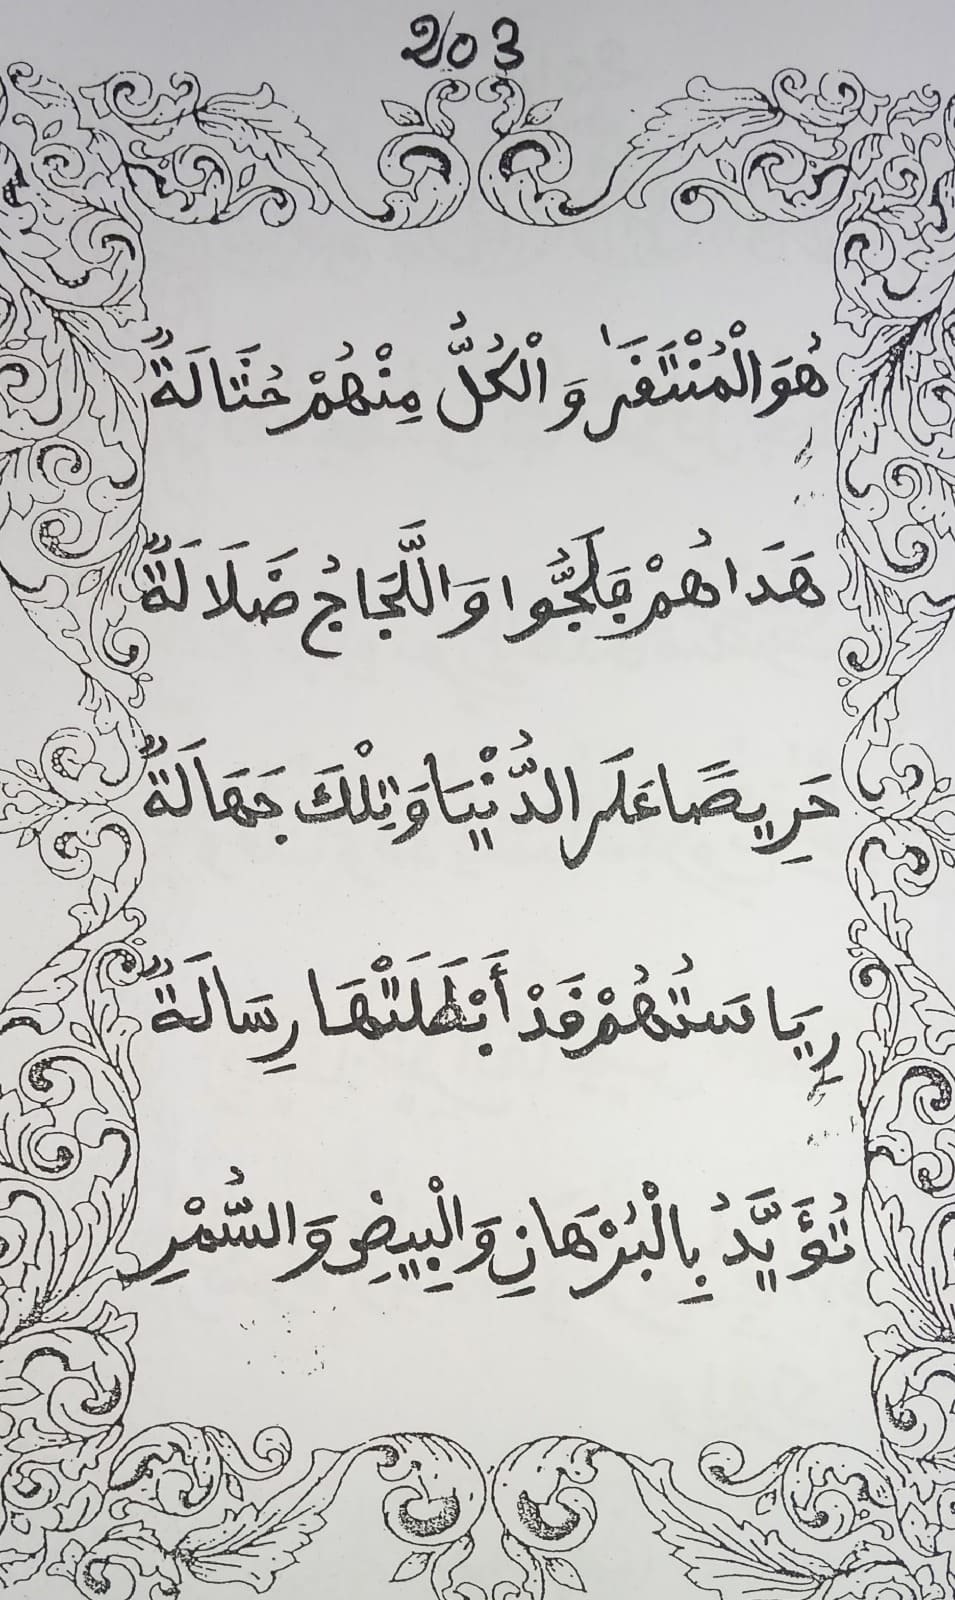 203
هُوَ الْمُنْتَقَىٰ وَ الْكُلُّ مِنْهُمْ حُثَالَةٌ
هَدَاهُمْ فَلَجُّوا وَاللَّجَاجُ ضَلَالَةٌ
حَرِيصًا عَلَى الدُّنْيَا وَتِلْكَ جَهَالَةٌ
رِيَاسَتُهُمْ قَدْ أَبْطَلَتْهَا رِسَالَةٌ
تُؤَيَّدُ بِالْبُرْهَانِ وَالْبِيضِ وَالسُّمْرِ